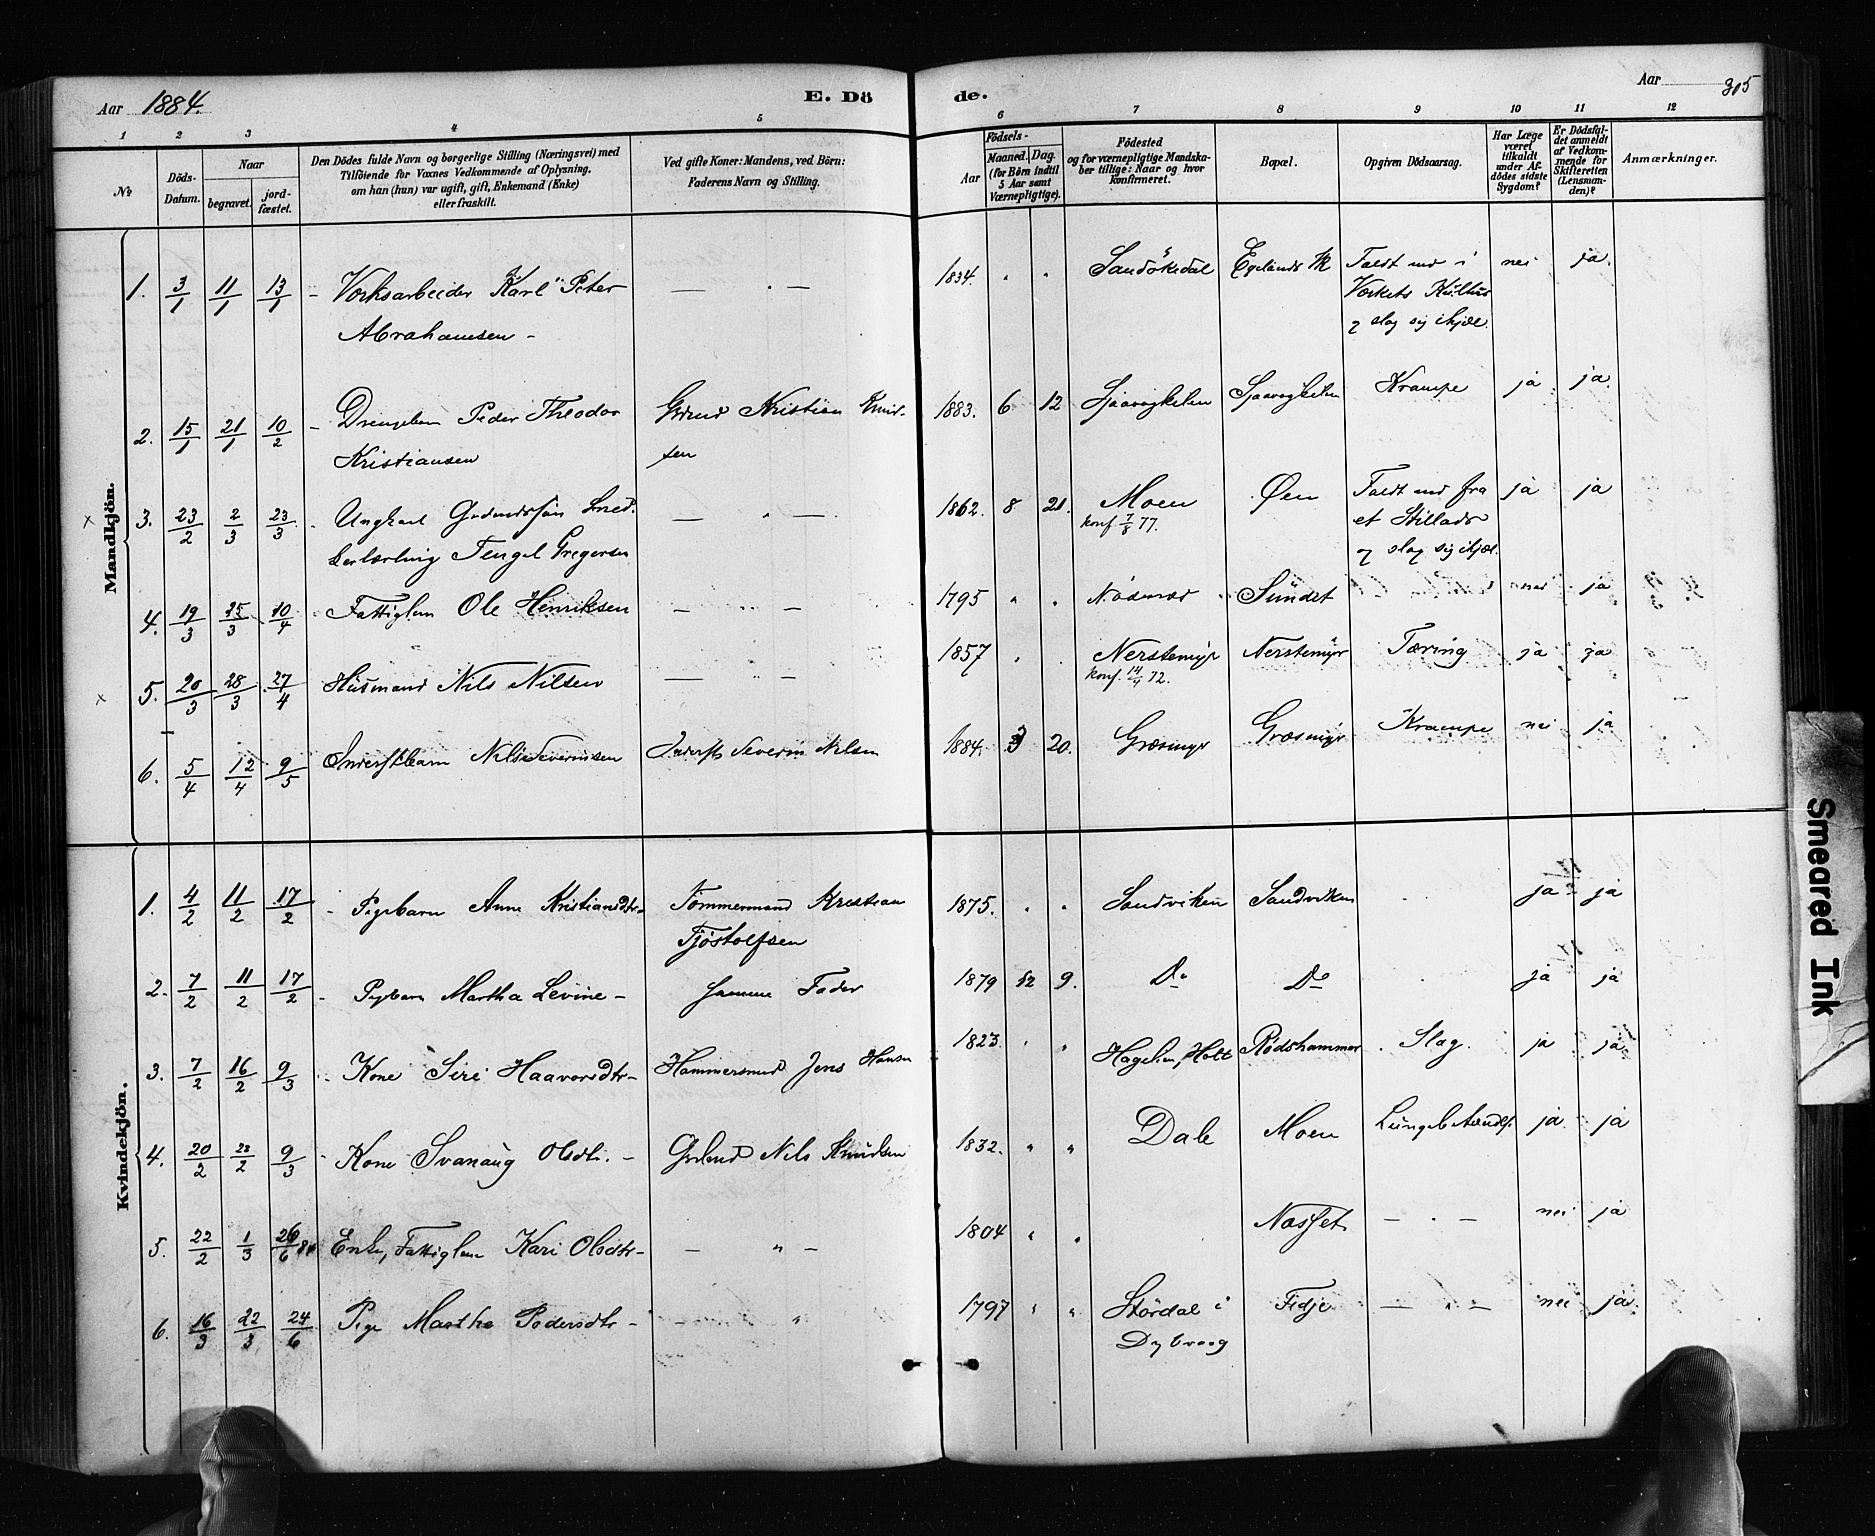 Aar 1884.
E. Dö
de.
Aar 305
1 2 3 4 5 6 7 8 9 10 11 12
No
Döds-Datum.
Naar
begravet.
jord-fæstet.
Den Dödes fulde Navn og borgerlige Stilling (Næringsvei) med
Tilföiende for Voxnes Vedkommende af Oplysning,
om han (hun) var ugift, gift, Enkemand (Enke)
eller fraskilt.
Ved gifte Koner: Mandens, ved Börn:
Faderens Navn og Stilling.
Födsels-
Aar
Maaned. Dag.
(for Börn indtil
5 Aar samt
Værnepligtige).
Födested
og for værnepligtige Mandska-
ber tillige: Naar og hvor
Konfirmeret.
Bopæl.
Opgiven Dödsaarsag.
Har Læge
været
tilkaldt
under Af-
dödes sidste
Sygdom?
Er Dödsfal-
det anmeldt
af Vedkom-
mende for
Skifteretten
(Lensman-
den)?
Anmærkninger.
Mandkjön.
1. 3/1 11/1 13/1 - Værksarbeider Karl Peter — " — 1834. " " Sandökedal Egelands Vk Faldt ned i nei ja.
Abrahamsen - Værkets Kulhus
og slog sig ihjæl.
2. 15/1 21/1 10/2 - Drengebarn Peder Theodor Grdmd Kristian Knud- 1883. 6 12 Sjaavaagkilen Sjaavaagkilen Krampe ja ja.
Kristiansen sen
x 3. 23/2 2/3 23/3 - Ungkarl Gaardmandssön Sned- — " — 1862. 8 21. Moen Øen Faldt ned fra ja ja
kerlærling Tengel Gregersen konf 7/8 77. et Stillads
og slog sig ihjæl.
4. 19/3 25/3 10/4 - Fattiglem Ole Henriksen — " — 1795 " " Sundet nei ja
x 5. 20/3 28/3 27/4 Husmand Nils Nilsen — " — 1857 " . Nerstemyr Nerstemyr Tæring ja ja
konf. 14/4 72.
6. 5/4 12/4 9/5 Inderstbarn Nils Severinsen Inderst Severin Nilsen 1884. 3 20. Græsmyr Græsmyr Krampe nei ja
Kvindekjön.
1. 4/2 11/2 17/2 - Pigebarn Anne Kristiansdtr- Tömmermand Kristian 1875. " " Sandviken Sandviken ja ja
Tjöstolfsen
2. 7/2 11/2 17/2 - Pigebarn Martha Levine - samme Fader 1879 12 9. Do Do ja ja
3. 7/2 16/2 9/3 - Kone Siri Haavorsdtr- Hammersmed Jens Hansen 1823. " " Hagelien, Holt Rødshammer Slag. ja ja
4. 20/2 28/2 9/3 - Kone Svanaug Olsdtr. - Grdmd Nils Knudsen 1832. " " Dale Moen Lungebetændels. ja ja
5. 22/2 1/3 26/6 84 Enke, Fattiglem Kari Olsdtr- — " — 1804 " " Næsset — " — nei ja
6. 16/3 22/3 24/6 Pige Marthe Pedersdtr- " 1797 " " Stördal i Fidje — " — nei ja.
Dybvaag
Smeared Ink